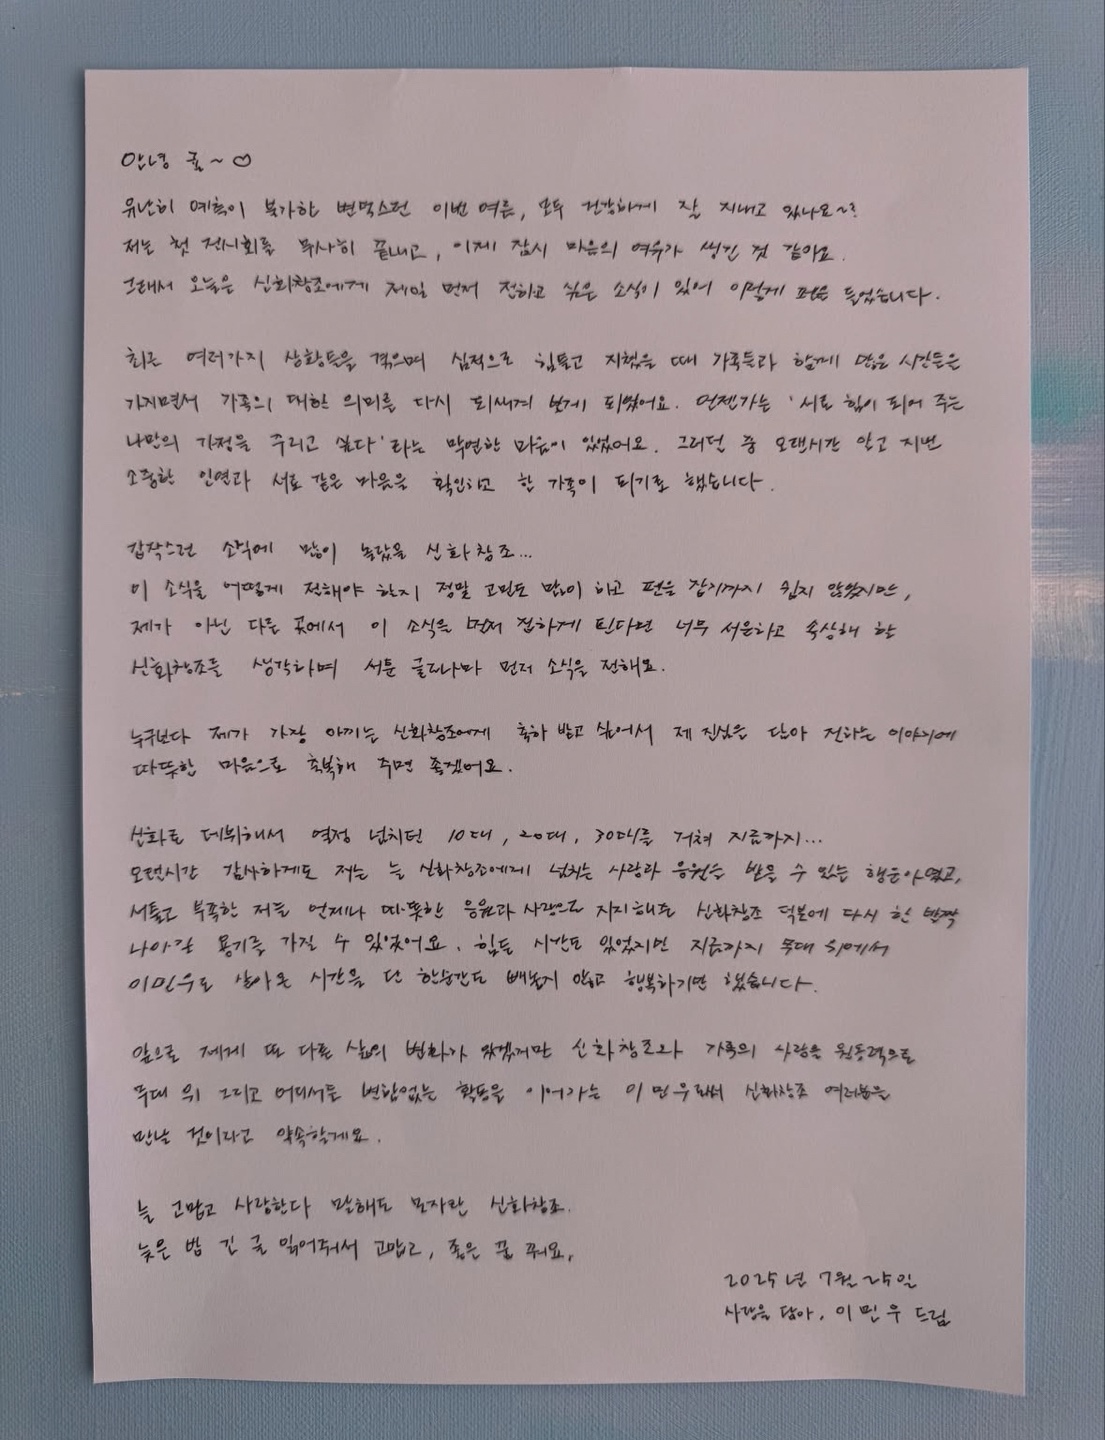 안녕 귤~♡
유난히 예측이 불가한 변덕스런 이번 여름, 모두 건강하게 잘 지내고 있나요~?
저는 첫 전시회를 무사히 끝내고, 이제 잠시 마음의 여유가 생긴 것 같아요.
그래서 오늘은 신화창조에게 제일 먼저 전하고 싶은 소식이 있어 이렇게 펜을 들었습니다.
최근 여러가지 상황들을 겪으며 심적으로 힘들고 지쳤을 때 가족들과 함께 많은 시간들을
가지면서 가족의 대한 의미를 다시 되새겨 보게 되었어요. 언젠가는 '서로 힘이 되어 주는
나만의 가정을 꾸리고 싶다'라는 막연한 마음이 있었어요. 그러던 중 오랜시간 알고 지낸
소중한 인연과 서로 같은 마음을 확인하고 한 가족이 되기로 했습니다.
갑작스런 소식에 많이 놀랐을 신화창조...
이 소식을 어떻게 전해야 할지 정말 고민도 많이 하고 펜을 잡기까지 쉽지 않았지만,
제가 아닌 다른 곳에서 이 소식을 먼저 접하게 된다면 너무 서운하고 속상해 할
신화창조를 생각하며 서툰 글로나마 먼저 소식을 전해요.
누구보다 제가 가장 아끼는 신화창조에게 축하 받고 싶어서 제 진심을 담아 전하는 이야기에
따뜻한 마음으로 축복해 주면 좋겠어요.
신화로 데뷔해서 열정 넘치던 10대, 20대, 30대를 거쳐 지금까지...
오랜시간 감사하게도 저는 늘 신화창조에게 넘치는 사랑과 응원을 받을 수 있는 행운아였고,
서툴고 부족한 저를 언제나 따뜻한 응원과 사랑으로 지지해준 신화창조 덕분에 다시 한 발짝
나아갈 용기를 가질 수 있었어요. 힘든 시간도 있었지만 지금까지 무대 위에서
이민우로 살아온 시간을 단 한순간도 빼놓지 않고 행복하기만 했습니다.
앞으로 제게 또 다른 삶의 변화가 있겠지만 신화창조와 가족의 사랑을 원동력으로
무대 위 그리고 어디서든 변함없는 활동을 이어가는 이민우로써 신화창조 여러분을
만날 것이라고 약속할게요.
늘 고맙고 사랑한다 말해도 모자란 신화창조.
늦은 밤 긴 글 읽어줘서 고맙고, 좋은 꿈 꿔요.
2025년 7월 25일
사랑을 담아, 이민우 드림